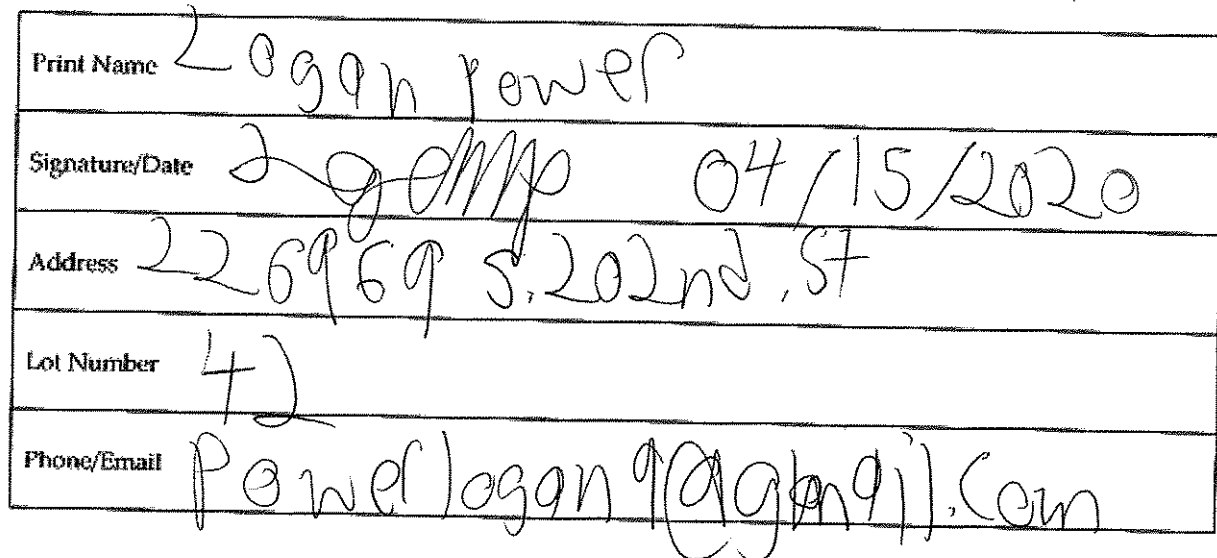 Print Name Logan Power
Signature/Date 04/15/2020
Address 226969 S. 202nd. St
Lot Number 42
Phone/Email Powerlogan9@gmail.com